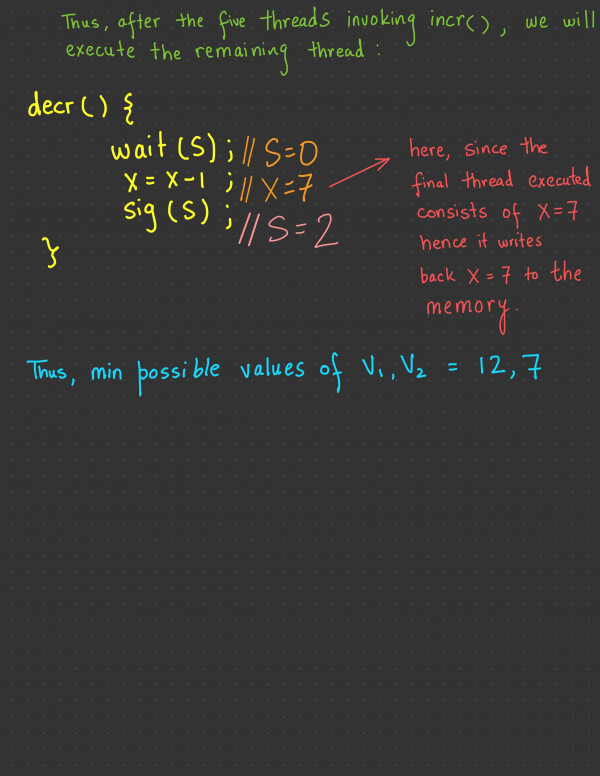 Thus, after the five threads invoking incr(), we will
execute the remaining thread :
decr() {
wait(S) ; // S=0
x = x-1 ; // X=7
sig(S) ; // S=2
}
here, since the
final thread executed
consists of X=7
hence it writes
back X=7 to the
memory.
Thus, min possible values of V₁, V₂ = 12, 7